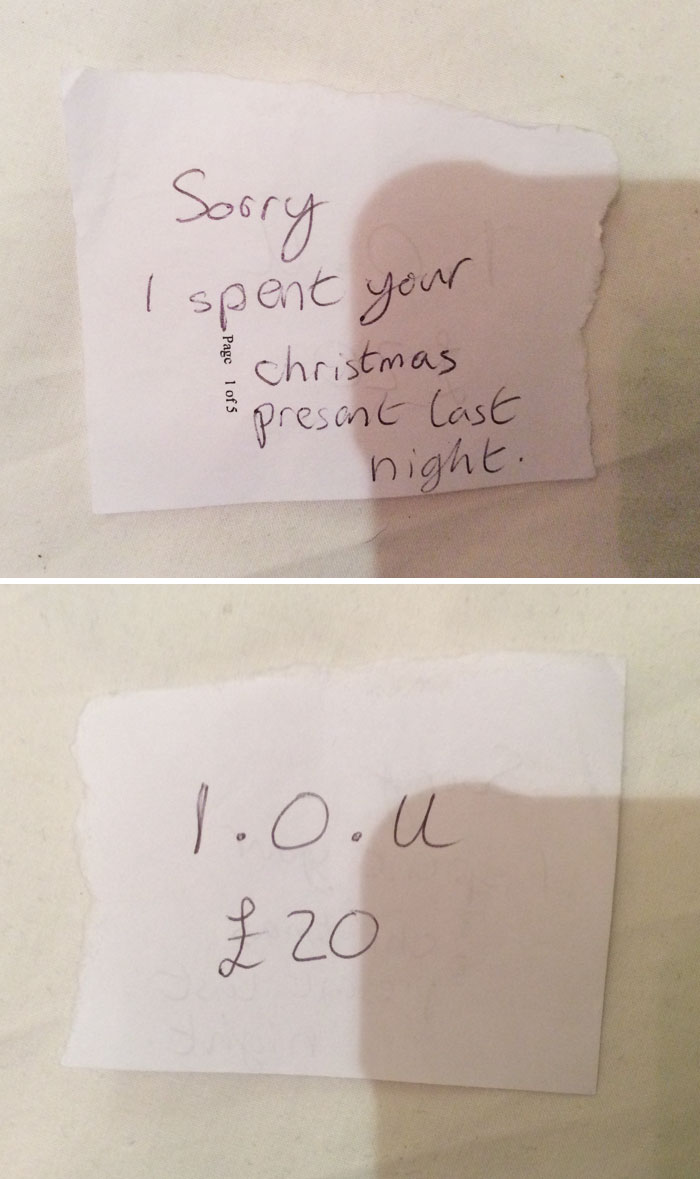 Sorry
I spent your
Page 1 of 5
christmas
present last
night.
I.O.U
£20